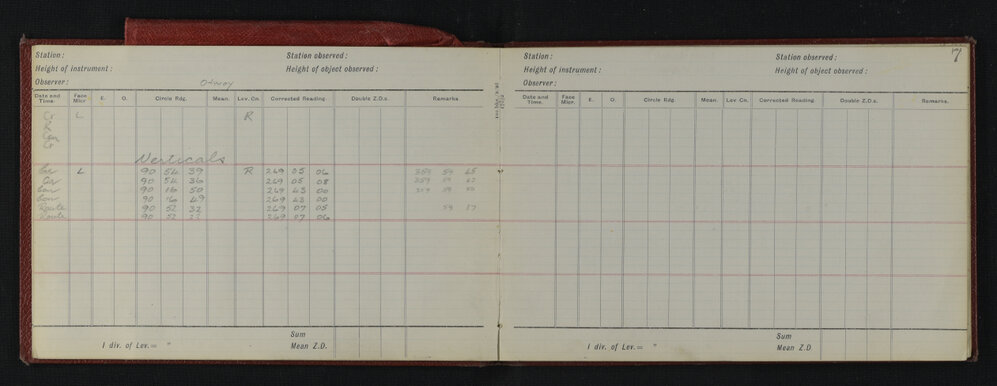 Station :
Station observed :
Height of instrument :
Height of object observed :
Observer :
Date and Time.
Face Micr.
E.
O.
Circle Rdg.
Mean.
Lev. Cn.
Corrected Reading
Double Z.D.s.
Remarks.
Cr L R
R
Cr
Verticals
L 90 54 39 R 269 05 06 359 59 45
Cr 90 54 36 269 05 08 359 59
Con 90 16 50 269 43 00
Con 90 16 49 269 43 00
Route 90 52 32 269 07 05 59 37
Route 90 52 269 07 06
Sum
1 div. of Lev.= "
Mean Z.D.
7
Station :
Station observed :
Height of instrument :
Height of object observed :
Observer :
Date and Time.
Face Micr.
E.
O.
Circle Rdg.
Mean.
Lev Cn.
Corrected Reading
Double Z.D.s.
Remarks.
Sum
1 div. of Lev.= "
Mean Z.D